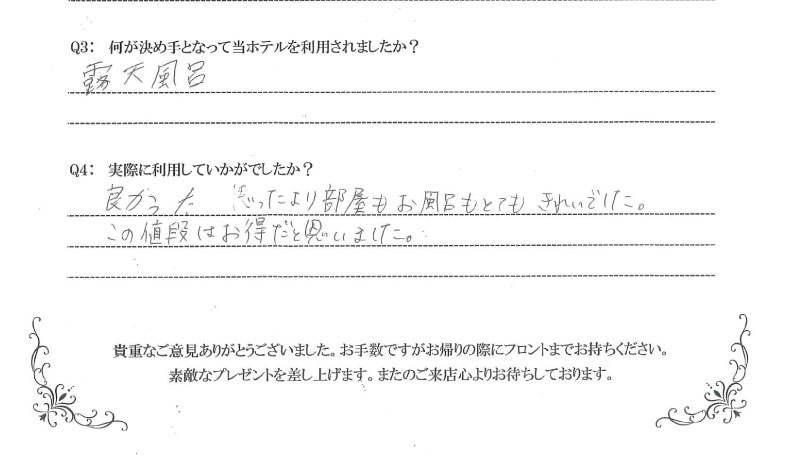 Q3： 何が決め手となって当ホテルを利用されましたか？
露天風呂
Q4： 実際に利用していかがでしたか？
良かった 思ったより部屋もお風呂もとてもきれいでした。
この値段はお得だと思いました。
貴重なご意見ありがとうございました。お手数ですがお帰りの際にフロントまでお持ちください。
素敵なプレゼントを差し上げます。またのご来店心よりお待ちしております。